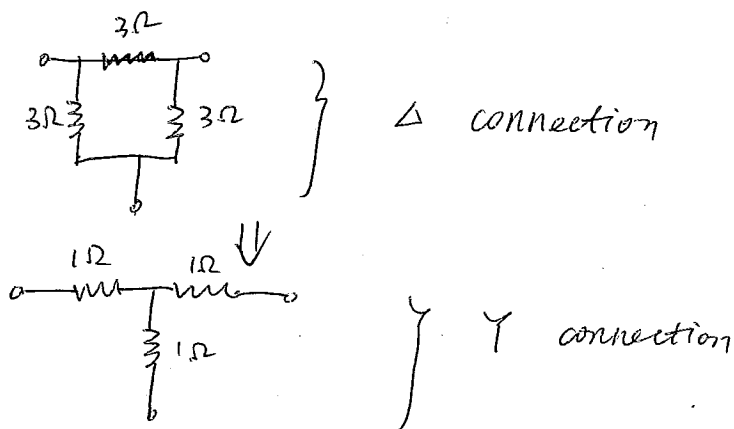 3Ω
3Ω 3Ω
Δ connection
1Ω 1Ω
1Ω
Y connection